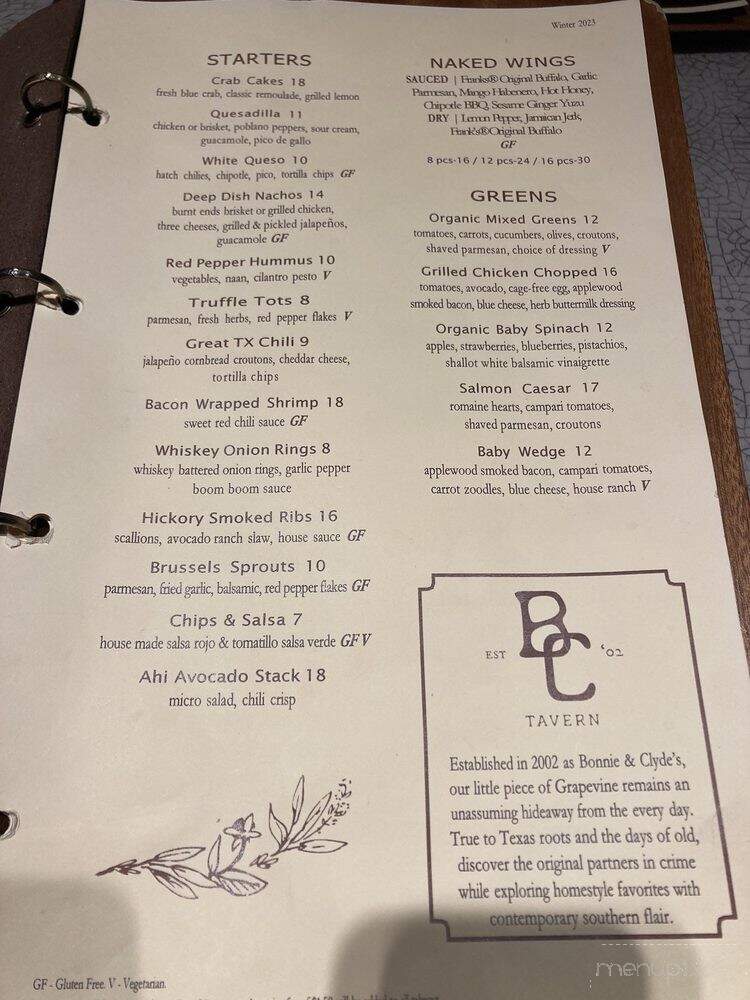 Winter 2023
STARTERS
Crab Cakes 18
fresh blue crab, classic remoulade, grilled lemon
Quesadilla 11
chicken or brisket, poblano peppers, sour cream,
guacamole, pico de gallo
White Queso 10
hatch chilies, chipotle, pico, tortilla chips GF
Deep Dish Nachos 14
burnt ends brisket or grilled chicken,
three cheeses, grilled & pickled jalapeños,
guacamole GF
Red Pepper Hummus 10
vegetables, naan, cilantro pesto V
Truffle Tots 8
parmesan, fresh herbs, red pepper flakes V
Great TX Chili 9
jalapeño cornbread croutons, cheddar cheese,
tortilla chips
Bacon Wrapped Shrimp 18
sweet red chili sauce GF
Whiskey Onion Rings 8
whiskey battered onion rings, garlic pepper
boom boom sauce
Hickory Smoked Ribs 16
scallions, avocado ranch slaw, house sauce GF
Brussels Sprouts 10
parmesan, fried garlic, balsamic, red pepper flakes GF
Chips & Salsa 7
house made salsa rojo & tomatillo salsa verde GF V
Ahi Avocado Stack 18
micro salad, chili crisp
NAKED WINGS
SAUCED | Franks® Original Buffalo, Garlic
Parmesan, Mango Habenero, Hot Honey,
Chipotle BBQ, Sesame Ginger Yuzu
DRY | Lemon Pepper, Jamaican Jerk,
Frank's® Original Buffalo
GF
8 pcs-16 / 12 pcs-24 / 16 pcs-30
GREENS
Organic Mixed Greens 12
tomatoes, carrots, cucumbers, olives, croutons,
shaved parmesan, choice of dressing V
Grilled Chicken Chopped 16
tomatoes, avocado, cage-free egg, applewood
smoked bacon, blue cheese, herb buttermilk dressing
Organic Baby Spinach 12
apples, strawberries, blueberries, pistachios,
shallot white balsamic vinaigrette
Salmon Caesar 17
romaine hearts, campari tomatoes,
shaved parmesan, croutons
Baby Wedge 12
applewood smoked bacon, campari tomatoes,
carrot zoodles, blue cheese, house ranch V
BC
EST '02
TAVERN
Established in 2002 as Bonnie & Clyde's,
our little piece of Grapevine remains an
unassuming hideaway from the every day.
True to Texas roots and the days of old,
discover the original partners in crime
while exploring homestyle favorites with
contemporary southern flair.
GF - Gluten Free. V - Vegetarian.